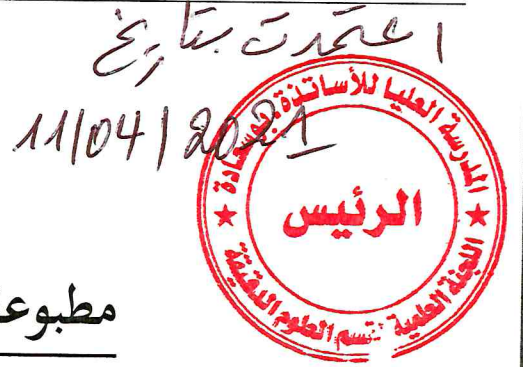 اعتمدت بتاريخ
11/04/2021
المدرسة العليا للأساتذة بوسعادة
الرئيس
اللجنة العلمية لقسم العلوم الدقيقة